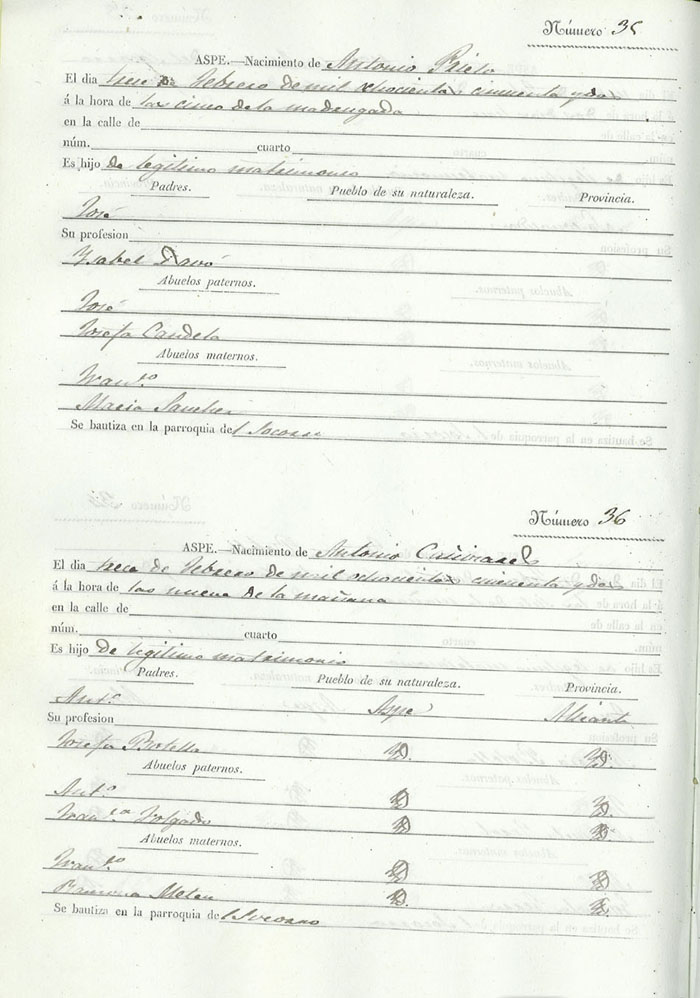 Número 35
ASPE.—Nacimiento de Antonio Prieto
El dia trece de Febrero de mil ochocientos cincuenta y dos
á la hora de las cinco de la madrugada
en la calle de
núm. cuarto
Es hijo de legitimo matrimonio
Padres. Pueblo de su naturaleza. Provincia.
José
Su profesion
Ysabel Pavó
Abuelos paternos.
José
Josefa Candela
Abuelos maternos.
Franco.
Maria Sanchez
Se bautiza en la parroquia del Socorro
Número 36
ASPE.—Nacimiento de Antonio Cañizares
El dia trece de Febrero de mil ochocientos cincuenta y dos
á la hora de las nueve de la mañana
en la calle de
núm. cuarto
Es hijo de legitimo matrimonio
Padres. Pueblo de su naturaleza. Provincia.
Anto. Aspe Alicante
Su profesion
Josefa Botella D. D.
Abuelos paternos.
Anto. D. D.
Franca Folgado D. D.
Abuelos maternos.
Franco. D. D.
Ramona D. D.
Se bautiza en la parroquia del Socorro